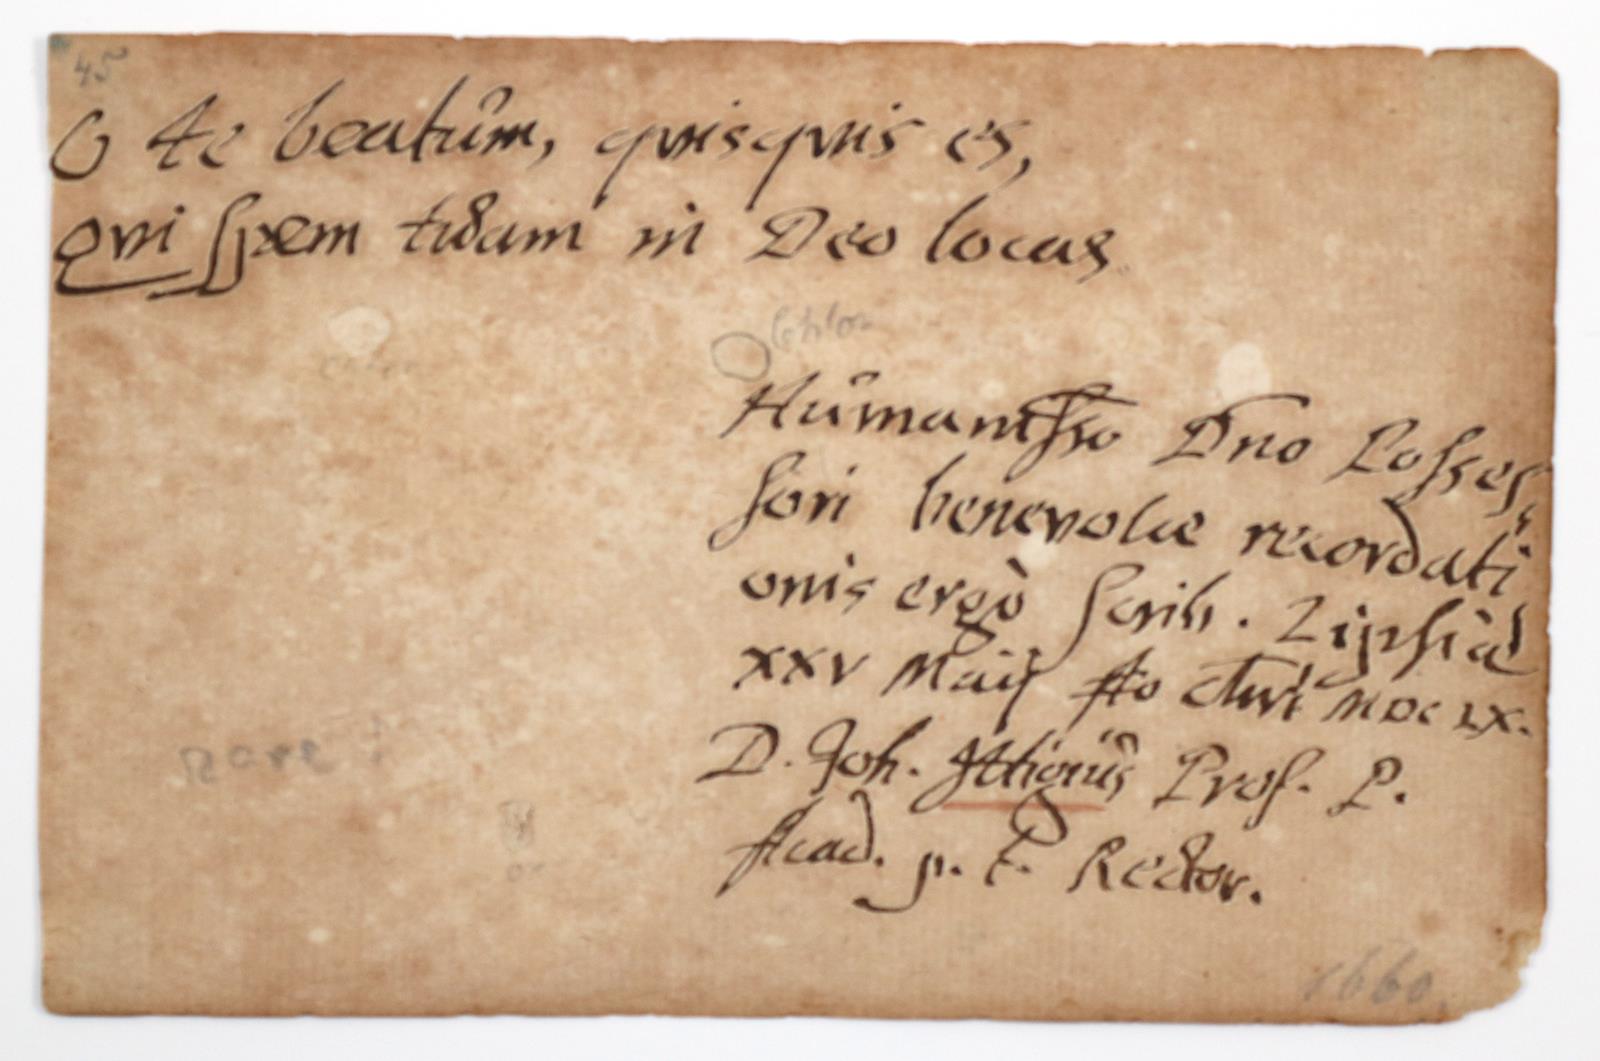 45
O te beatum, quisquis es,
qui spem tuam in Deo locas
Humanisso Dno Posses-
sori benevolae recordati
onis ergò scrib. Lipsiae
xxv Maij MDCLX.
D. Joh. Ittigius Prof. P.
Acad. p. t. Rector.
Rare
1660.